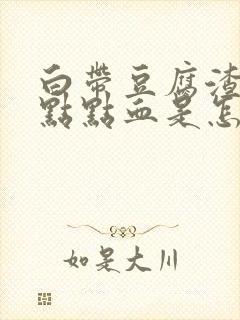 白帶豆腐渣
點點血是怎
如是大川